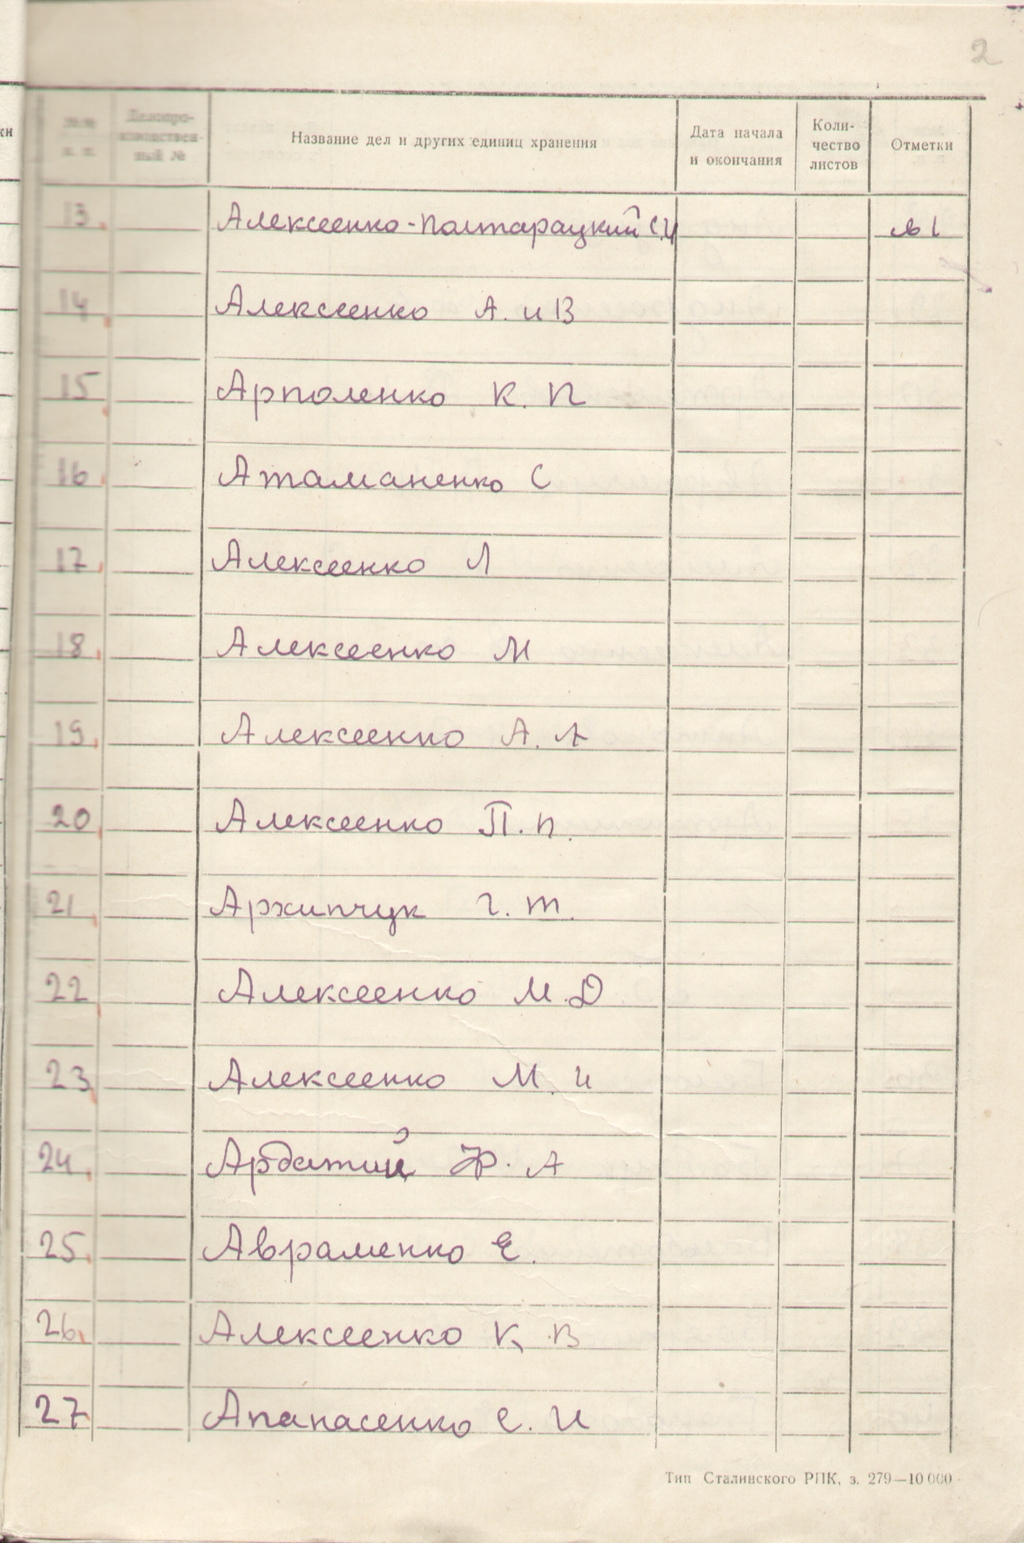 2
ки
№№ п. п.
Делопро-
изводствен-
ный №
Название дел и других единиц хранения
Дата начала
и окончания
Коли-
чество
листов
Отметки
13. Алексеенко-Полтарацкий
14. Алексеенко А. и В
15. Арполенко К. П
16. Атаманенко С
17. Алексеенко Л
18. Алексеенко М
19. Алексеенко А. А
20. Алексеенко П. П.
21. Архипчук Г. Т.
22. Алексеенко М. Д
23. Алексеенко М. И
24. Арбатий Ф. А
25. Авраменко Е.
26. Алексеенко К. В
27. Апанасенко Е. И
Тип Сталинского РПК, з. 279—10 000